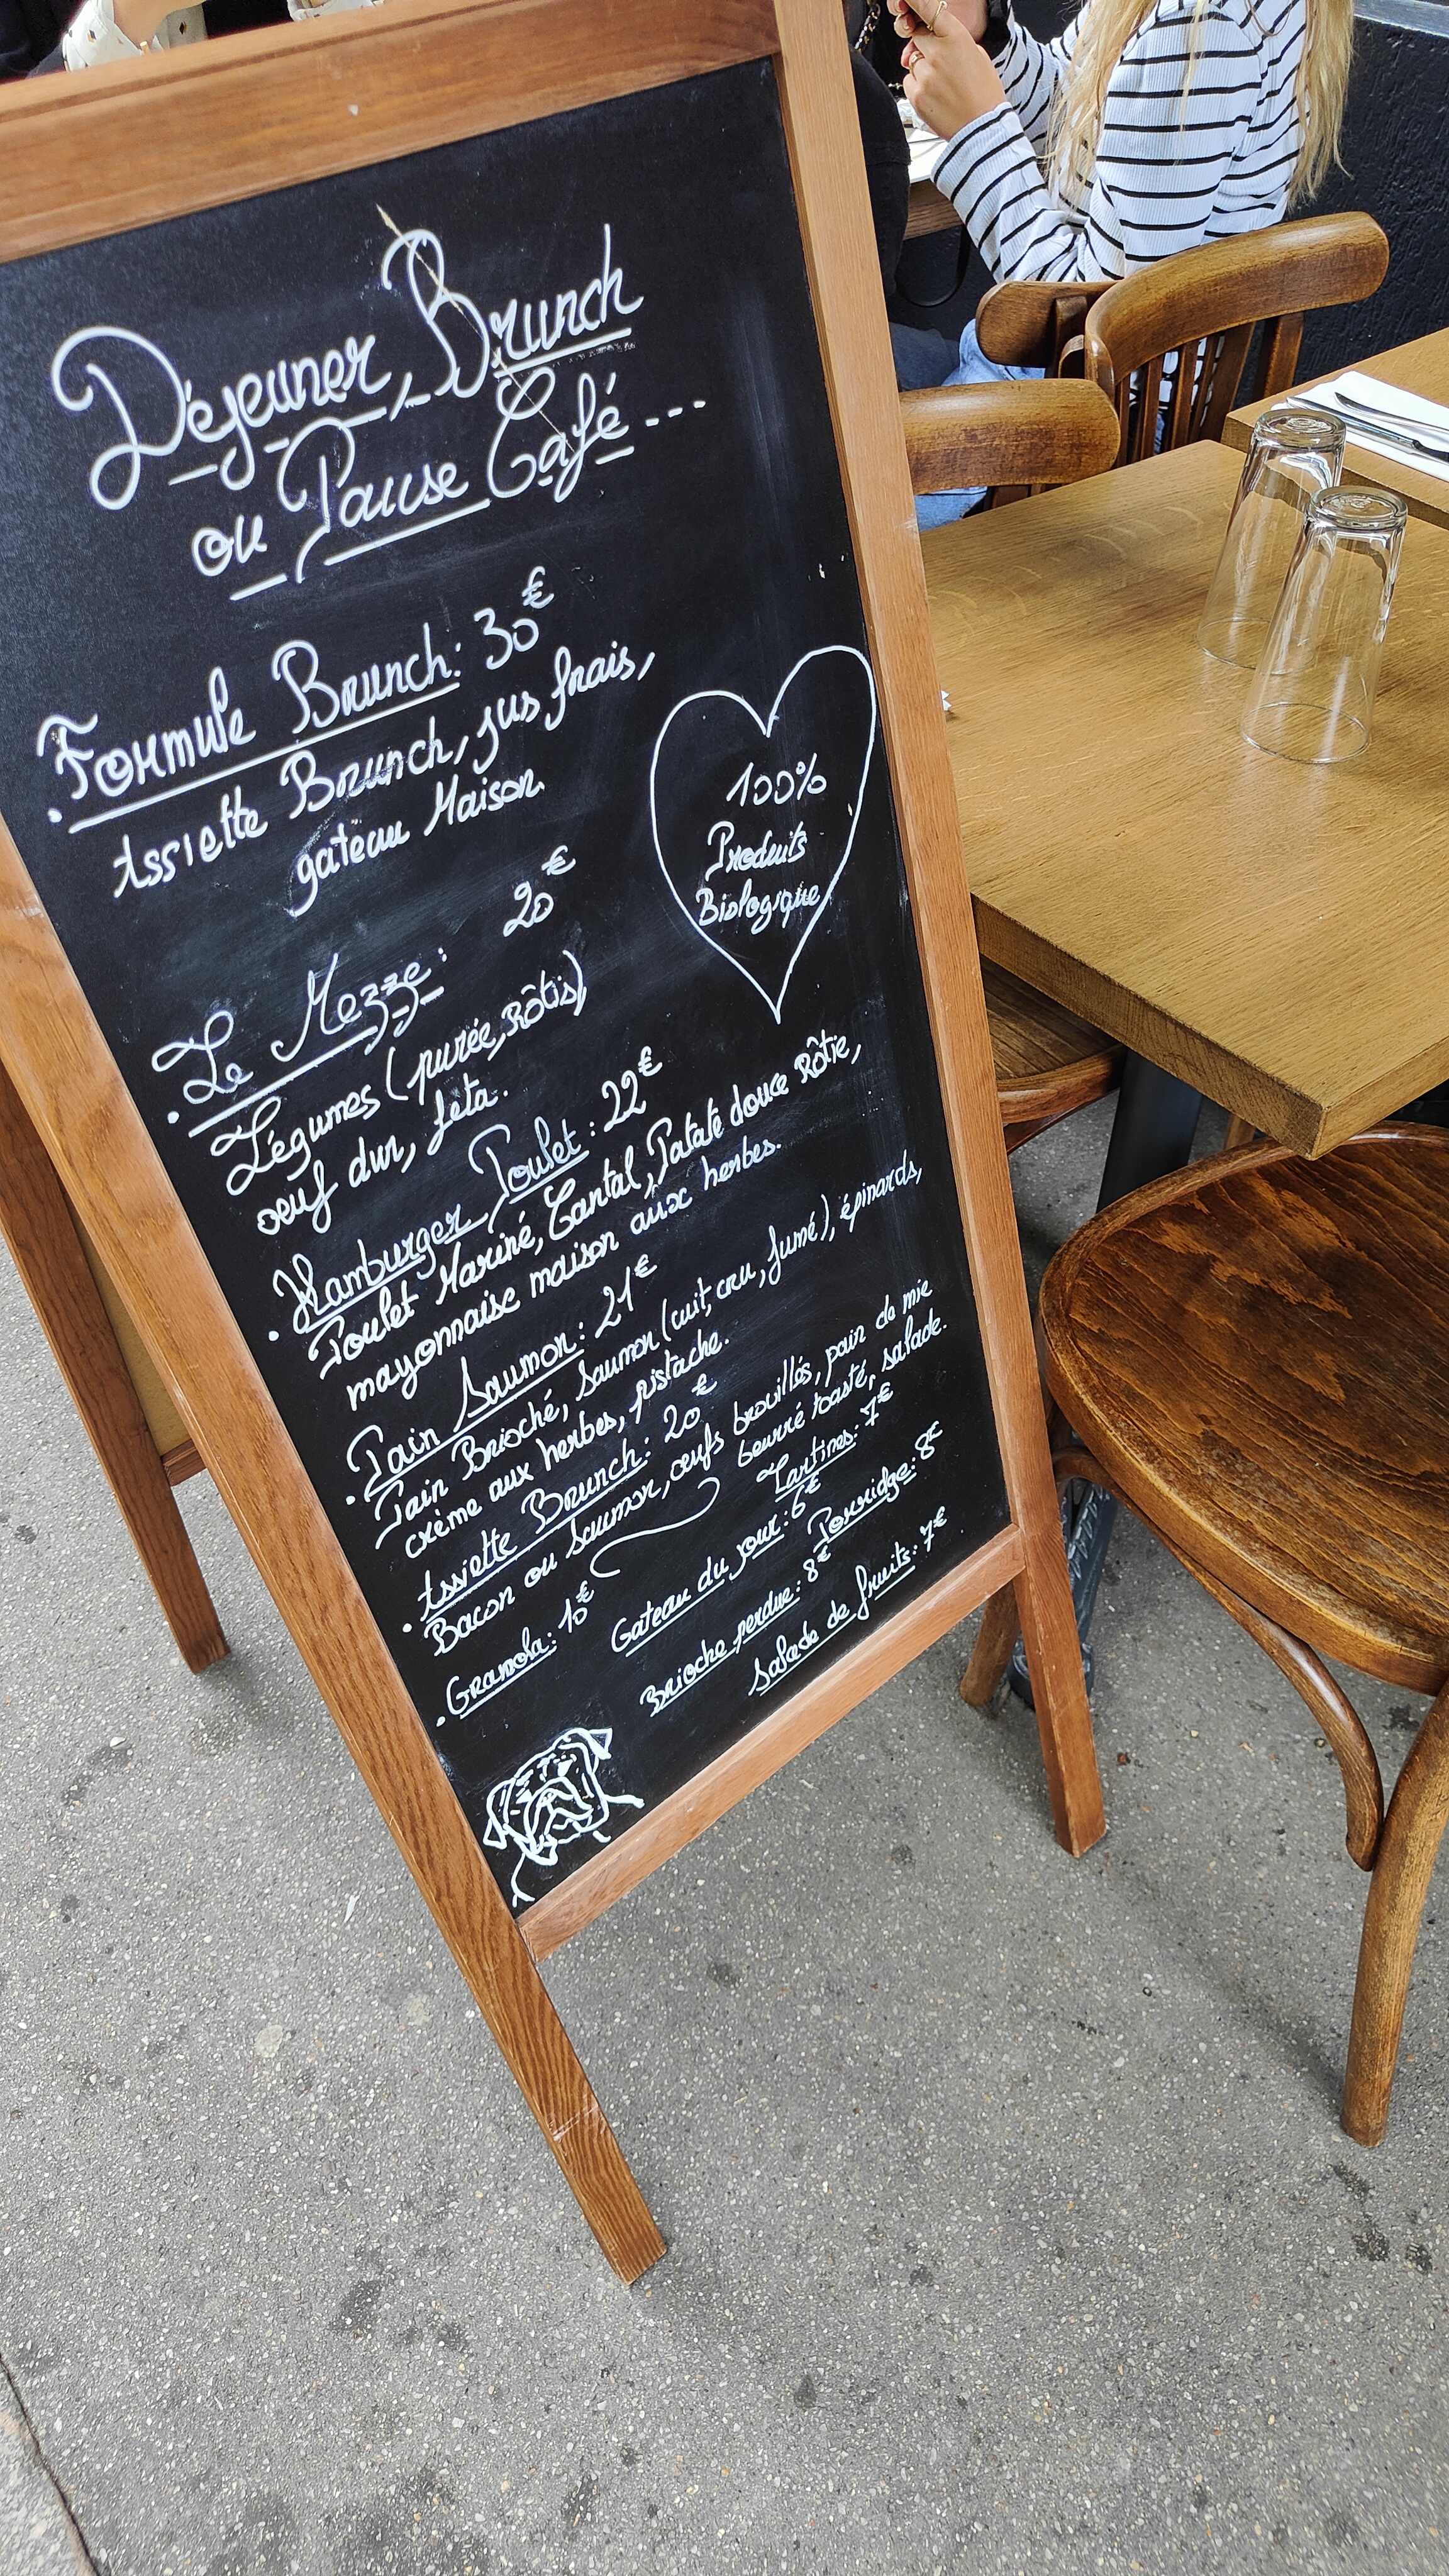 Déjeuner, Brunch
ou Pause Café...
· Formule Brunch: 30€
Assiette Brunch, jus frais,
gateau Maison.
100%
Produits
Biologique
· Le Mezze: 20€
Légumes (purée, Rôtis),
oeuf dur, feta.
· Hamburger Poulet: 22€
Poulet Mariné, Cantal, Patate douce Rôtie,
mayonnaise maison aux herbes.
· Pain Saumon: 21€
Pain Brioché, Saumon (cuit, cru, fumé), épinards,
crème aux herbes, pistache.
· Assiette Brunch: 20€
Bacon ou Saumon, œufs brouillés, pain de mie
beurré toasté, salade.
· Granola: 10€
Gateau du jour: 6€
Tartines: 7€
Brioche perdue: 8€
Porridge: 8€
Salade de fruits: 7€